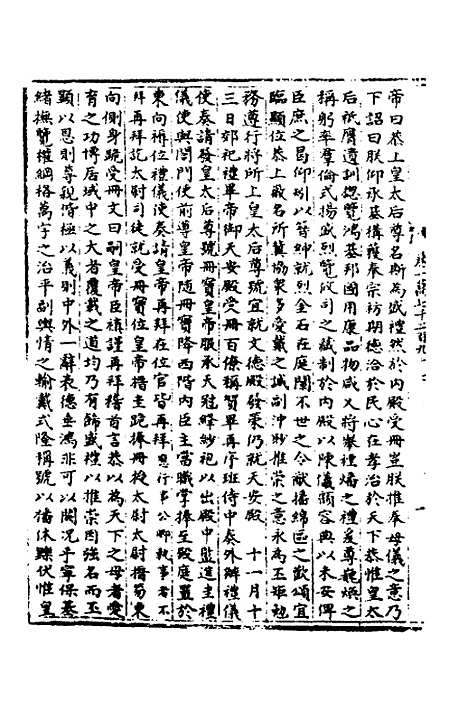 帝曰恭上皇太后尊名斯為盛禮然於內殿受冊豈朕推奉母儀之意乃
下詔曰朕仰承基構獲奉宗祊期德洽於民心在孝治於天下恭惟皇太
后祇膺遺訓總覽鴻基邦國用康品物咸乂將舉禮之禮爰尊範之
稱躬率羣倫式揚盛烈覽攸司之制於內殿以陳儀顧容典以未安俾
臣庶之曷仰以簪紳就列金石在庭闡不世之令猷播綿區之歡頌宜
臨顯位恭上徽名所冀協衆多愛戴之誠副沖眇推崇之意永為玉矩勉
務遵行將所上皇太后尊號宜就文德殿發冊仍就天安殿 十一月十
三日郊祀禮畢帝御天安殿受冊百僚稱賀畢再序班侍中奏外辦禮儀
使奏請發皇太后尊號冊寶皇帝服承天冠絳紗袍以出殿中監進圭禮
儀使與閤門使前導皇帝隨冊寶降西階內臣主當職掌捧至殿庭置於
東向褥位禮儀使奏請皇帝再拜在位官皆再拜行事公卿執事者不
拜再拜訖太尉司徒就受冊寶位皇帝搢圭跪捧冊授太尉太尉搢笏東
向側身跪受冊文曰嗣皇帝臣禎謹再拜稽首言恭以為天下之母者愛
育之功博居域中之大者覆載之道均乃有飾盛禮以推崇因強名而玉
顯以恩則尊親皆極以義則中外一辭表德垂鴻非可以闕況乎寧保基
緒撫覽權綱格萬宇之治平副輿情之愉戴式隆稱號以播休臣伏惟皇